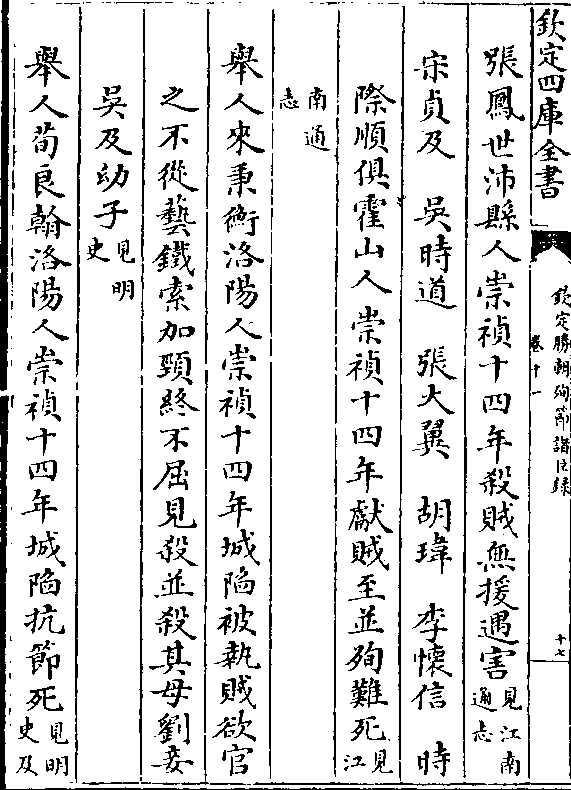 欽定四庫全書
欽定勝朝殉節諸臣錄
卷十一
十七
張鳳世沛縣人崇禎十四年殺賊無援遇害見江南
通志
宋貞及　吳時道　張大翼　胡瑋　李懷信　時
際順俱霍山人崇禎十四年獻賊至並殉難死見江
南通志
舉人來秉衡洛陽人崇禎十四年城陷被執賊欲官
之不從藝鐵索加頸終不屈見殺並殺其母劉妾
吳及幼子見明史
舉人荀良翰洛陽人崇禎十四年城陷抗節死見明
史及